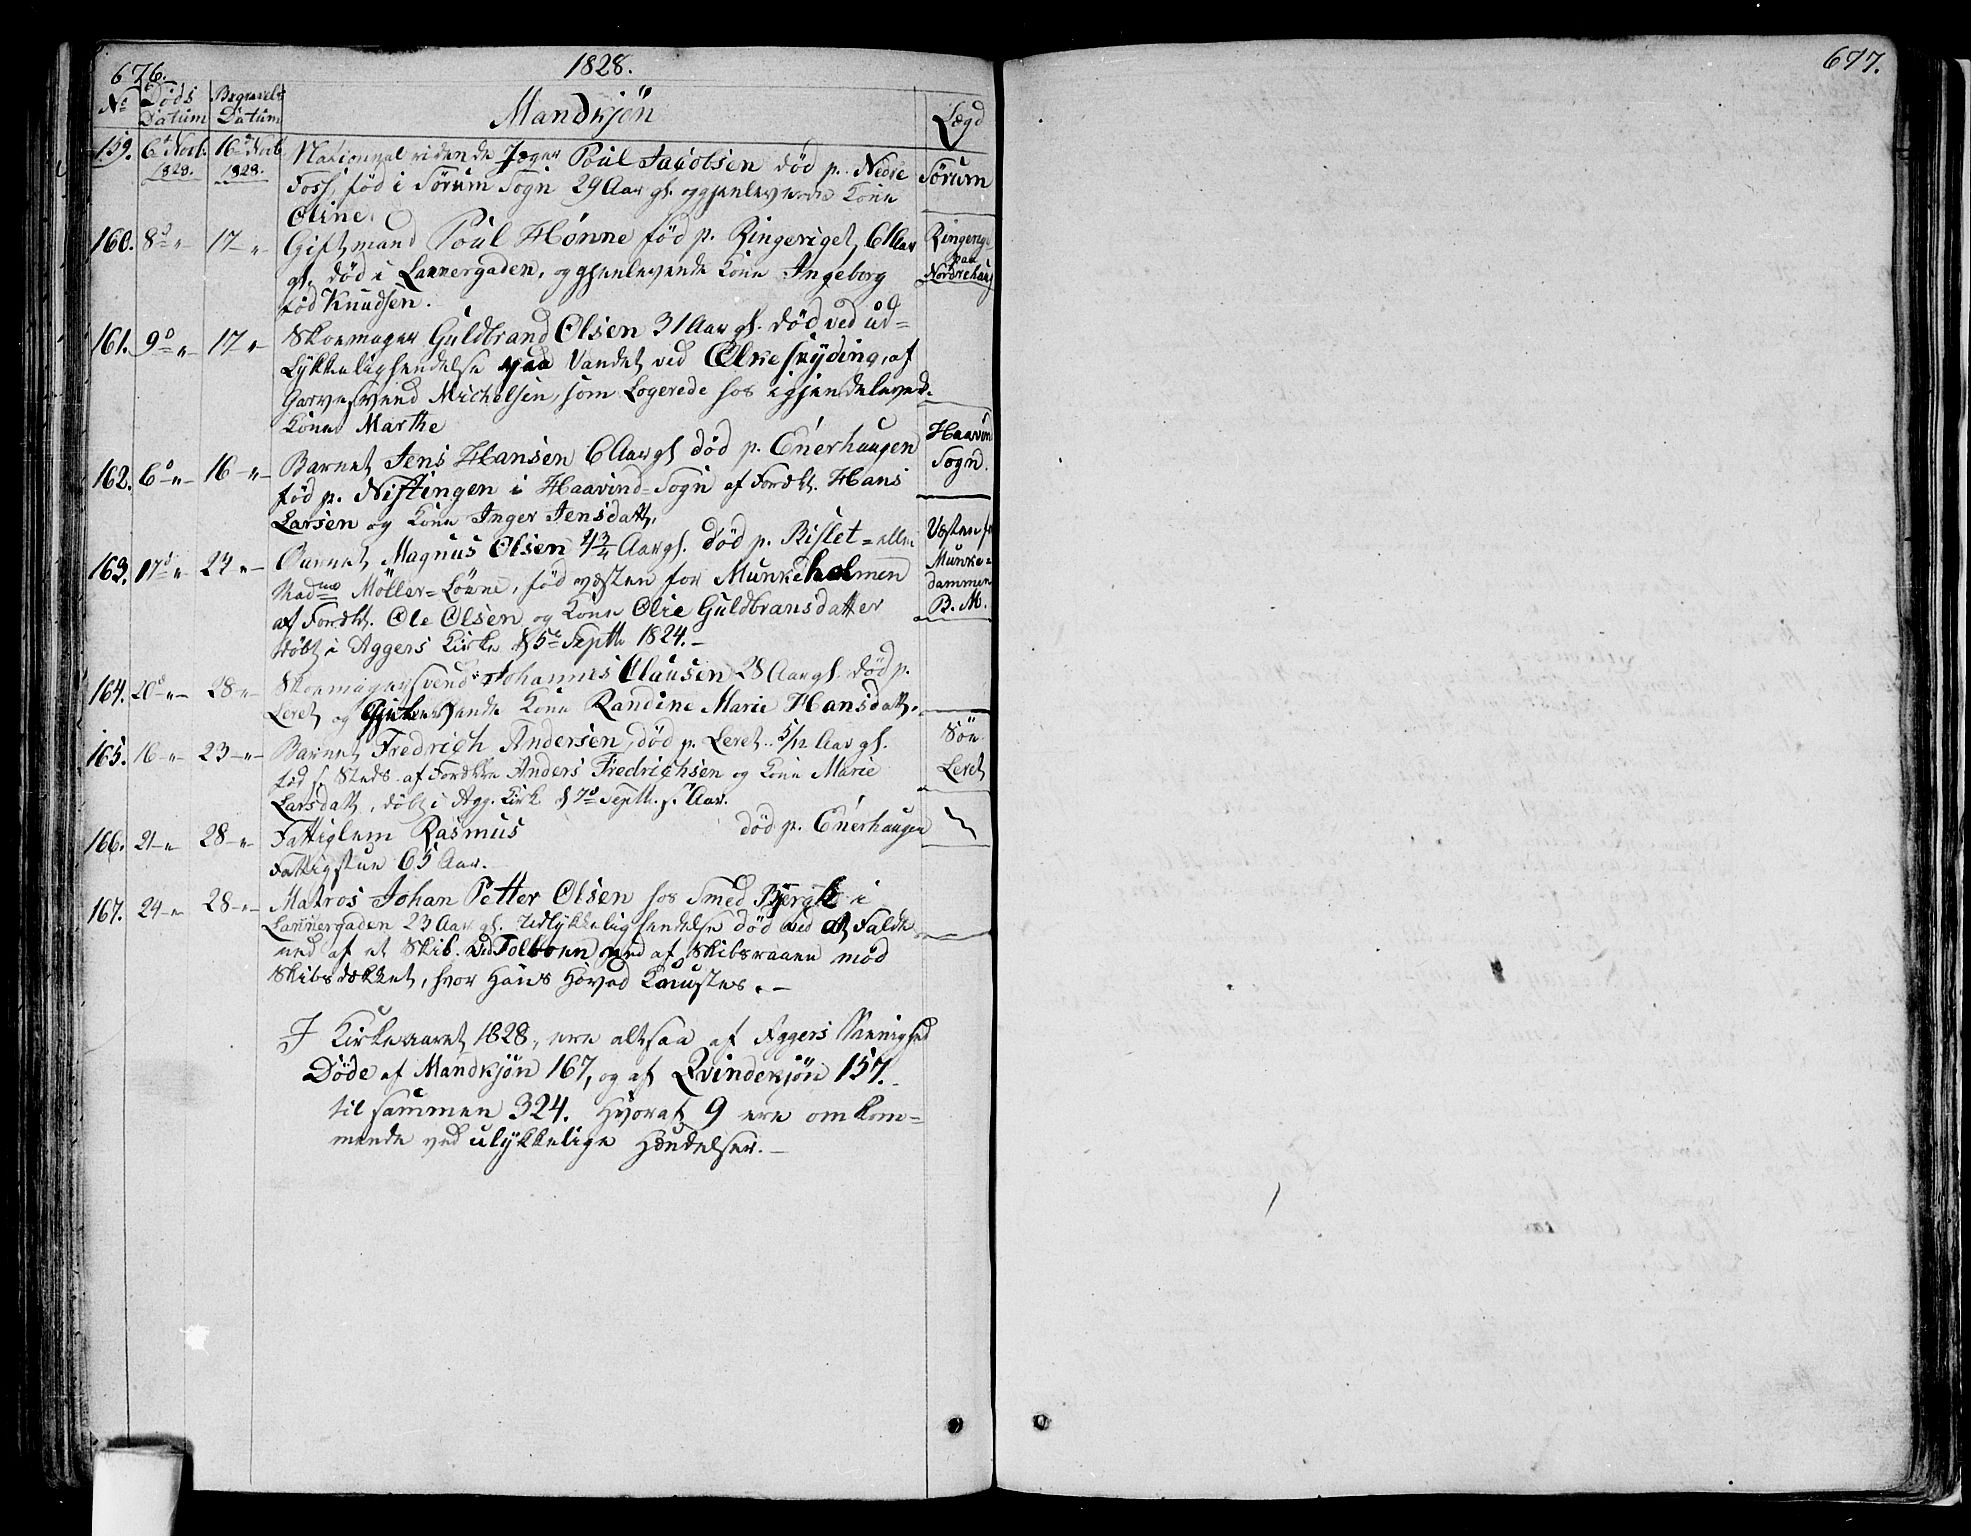 676.
1828.
No
Døds Datum
Begravels Datum
Mandkjön
Lægd
159. 6te Novb. 1828. 16de Novb. 1828. National ridende Jæger Poul Jacobsen död p. Nedre
Foss, föd i Sörum Sogn 29 Aar gl. og gjenlevende Kone
Oline.
Sörum
160. 8d " 17 " Giftmand Poul Hönne föd p. Ringeriget 61 Aar
gl. död i Lannergaden, og gjenlevende Kone Ingeborg
föd Knudsen.
Ringerige
paa
Nordrehaug
161. 9d " 17 " Skoemager Guldbrand Olsen 31 Aar gl. död ved ud=
lykkelig hendelse paa Vandet ved af
Garversvend Michelsen, som Logerede hos igjendelevend.
Kone Marthe
162. 6d " 16 " Barnet Jens Hansen 6 Aar gl död p. Enerhaugen
föd p. Nistingen i Haavind-Sogn af Forældr. Hans
Larsen og Kone Inger Jensdatt.
Haavin
Sogn.
163. 17d " 24 " Barnet Magnus Olsen 4¾ Aar gl. död p. Rislet= eller
Madme Möller=Lönne, föd vesten for Munkeholmen
af Forældr. Ole Olsen og Kone Olie Guldbransdatter
döbt i Aggers Kirke d 5te Septb 1824.-
Vesten f
Munke=
dammen
B. M.
164. 20d " 28 " Skoemagersvend Johannes Clausen 28 Aar gl. död p.
Leret og Gjenlevende Kone Randine Marie Hansdatt.
165. 16 " 23 " Barnet Fredrich Andersen, död p. Leret. 5/12 Aar gl.
föd s. Steds. af Forældre Anders Fredrichsen og Kone Marie
Larsdatt, döbt i Agg. Kirk d 7d Septb. s. Aar.
Sön
Leret
166. 21 " 28 " Fattiglem Rasmus död p. Enerhaugen
Fattigstue 65 Aar.
167. 24 " 28 " Matros Johan Petter Olsen hos Smed Bergh i
Lannergaden 23 Aar gl. Udlykkelig hendelse död ved at Falde
ned af et Skib. ved Tolboen ned af Skibsraaen mod
Skibsdækket, hvor Hans Hoved Knustes.-
I Kirkeaaret 1828, ere altsaa af Aggers Menighed
Döde af Mandkjön 167, og af Qvindekjön 157.
tilsammen 324. Hvoraf 9 ere omkom=
mende ved ulykkelige Hændelser.-
677.